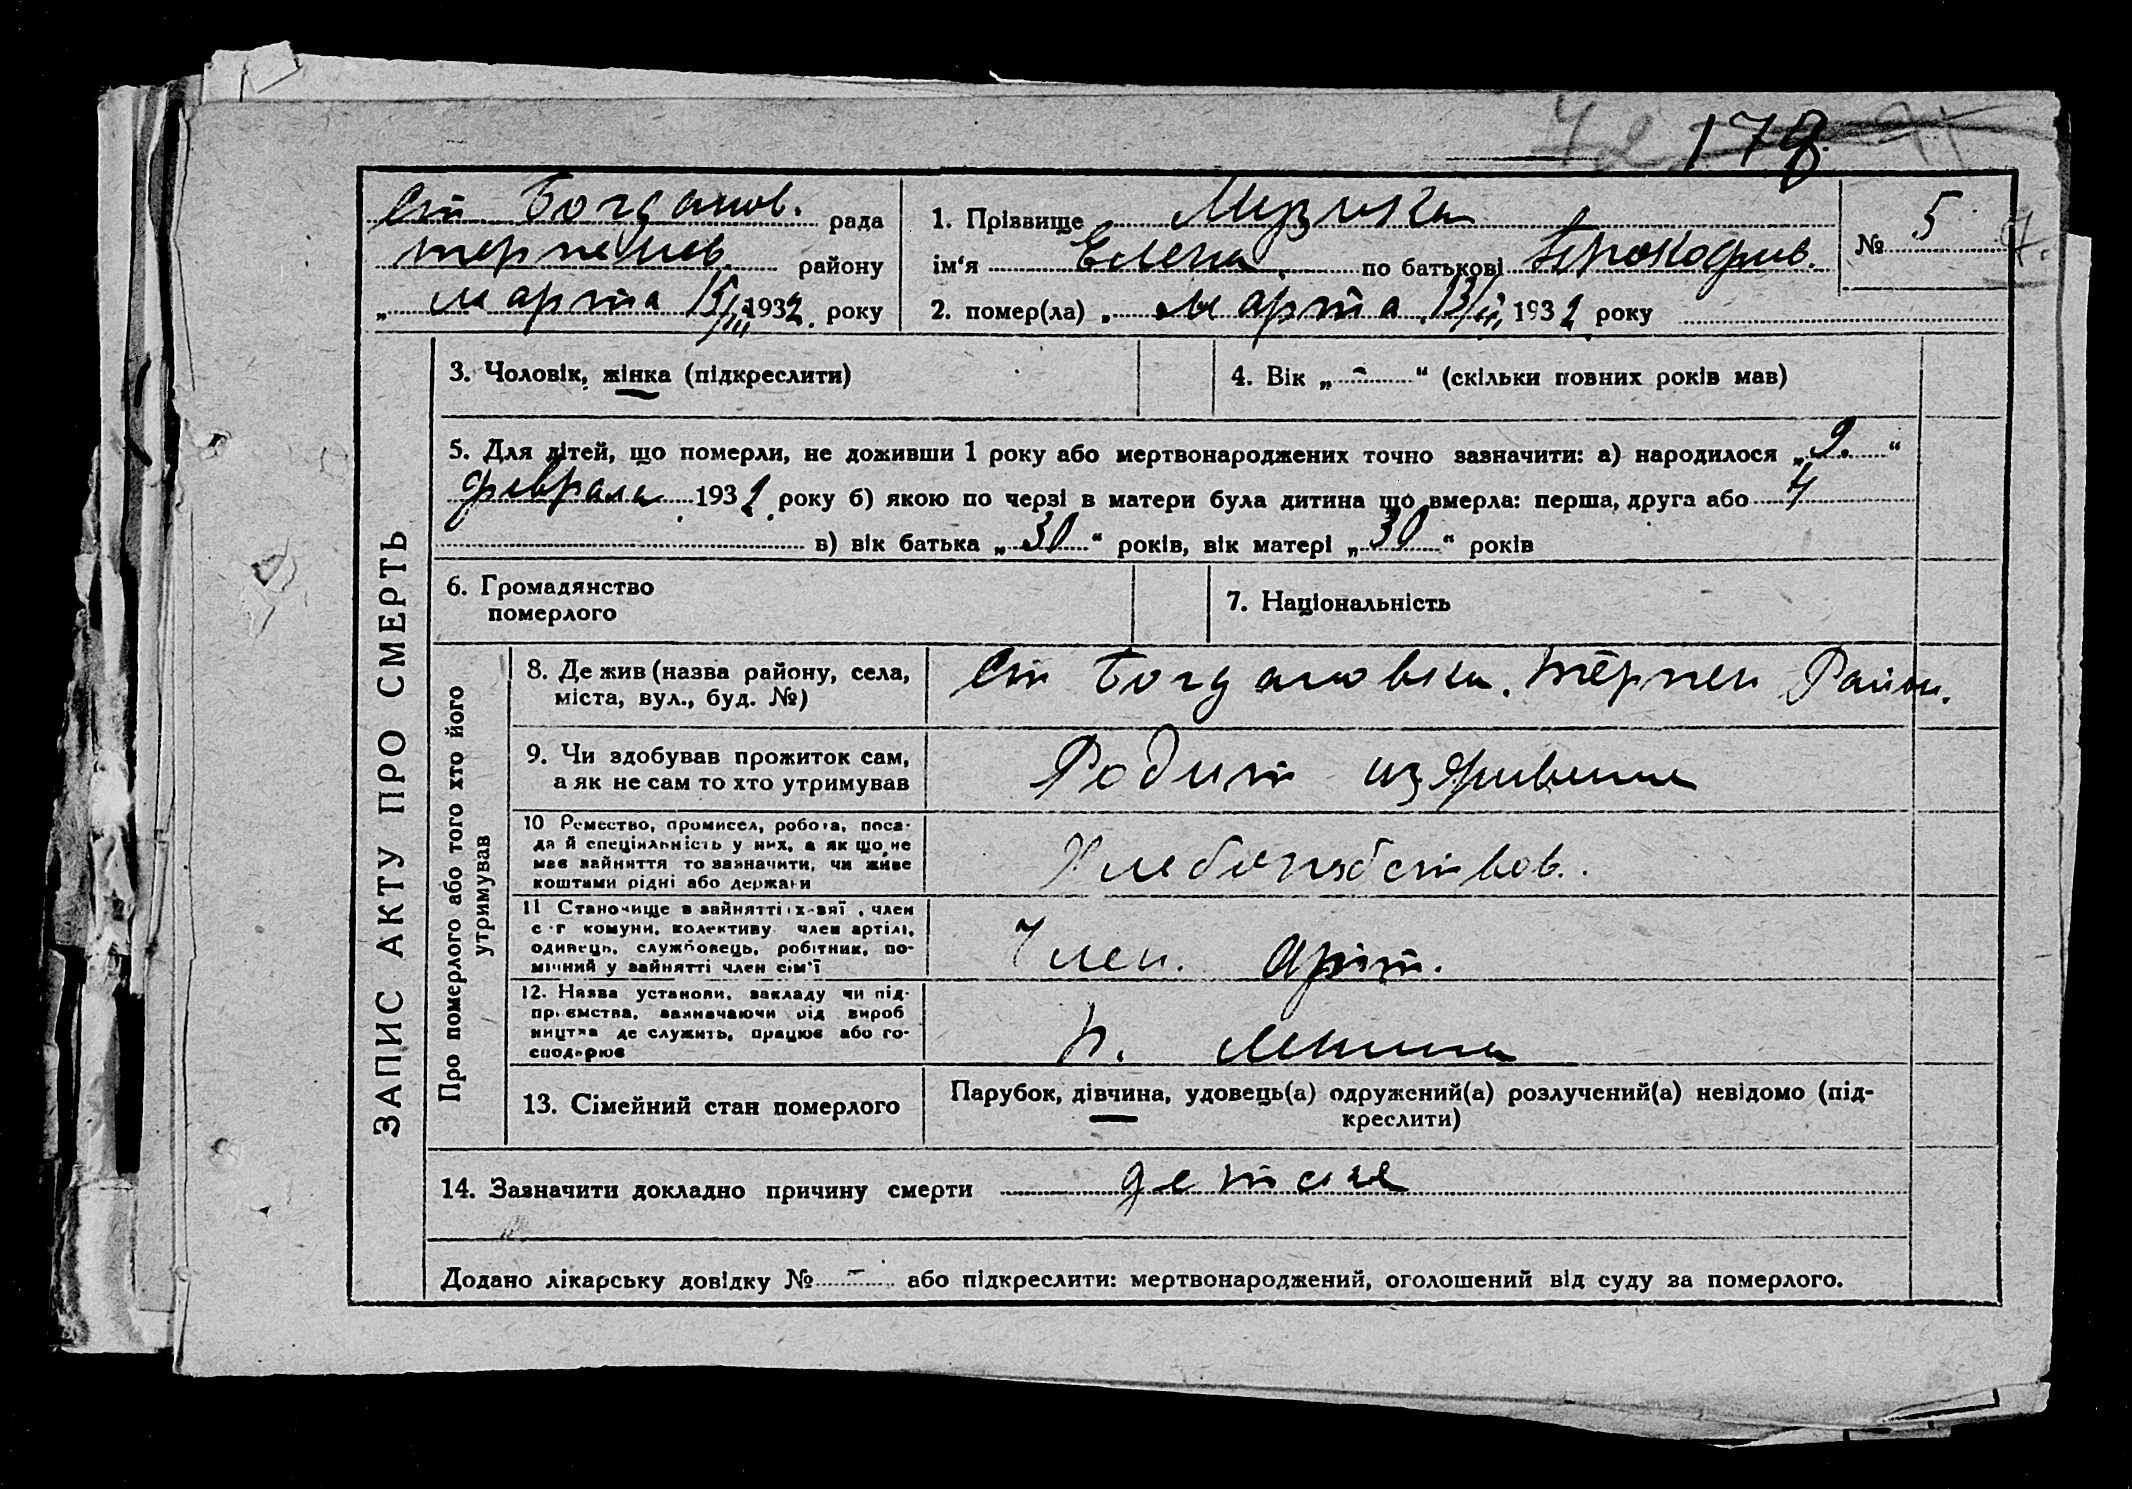 178.
Ст Богданов. рада
терпенев. району
„ марта 15/III 1932. року
1. Прізвище Музика
ім'я Елена по батькові Прокофив.
2. помер(ла) „ марта 13/III 1932 року
№ 5
ЗАПИС АКТУ ПРО СМЕРТЬ
3. Чоловік, жінка (підкреслити)
4. Вік „ - “ (скільки повних років мав)
5. Для дітей, що померли, не доживши 1 року або мертвонароджених точно зазначити: а) народилося „ 9. “
февраля 1932 року б) якою по черзі в матери була дитина що вмерла: перша, друга або 4
в) вік батька „ 30 “ років, вік матері „ 30 “ років
6. Громадянство
померлого
7. Національність
Про померлого або того хто його
утримував
8. Де жив (назва району, села,
міста, вул., буд. №)
Ст Богдановка. терпен Район.
9. Чи здобував прожиток сам,
а як не сам то хто утримував
Родит
10 Ремество, промисел, робота, поса-
да й спеціяльність у них, а як що не
має зайняття то зазначити, чи живе
коштами рідні або держави
11 Становище в зайнятті , член
с-г комуни, колективу член артілі,
одинець, службовець, робітник, по-
мічний у зайнятті член сім'ї
Член. Арт.
12. Назва установи, закладу чи під-
приємства, зазначаючи від вироб
ництва де служить, працює або го-
сподарює
Ленина
13. Сімейний стан померлого
Парубок, дівчина, удовець(а) одружений(а) розлучений(а) невідомо (під-
креслити)
14. Зазначити докладно причину смерти детская
Додано лікарську довідку № - або підкреслити: мертвонароджений, оголошений від суду за померлого.